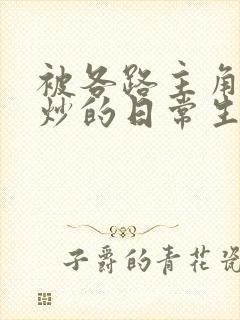 被各路主角
炒的日常生
子爵的青花瓷